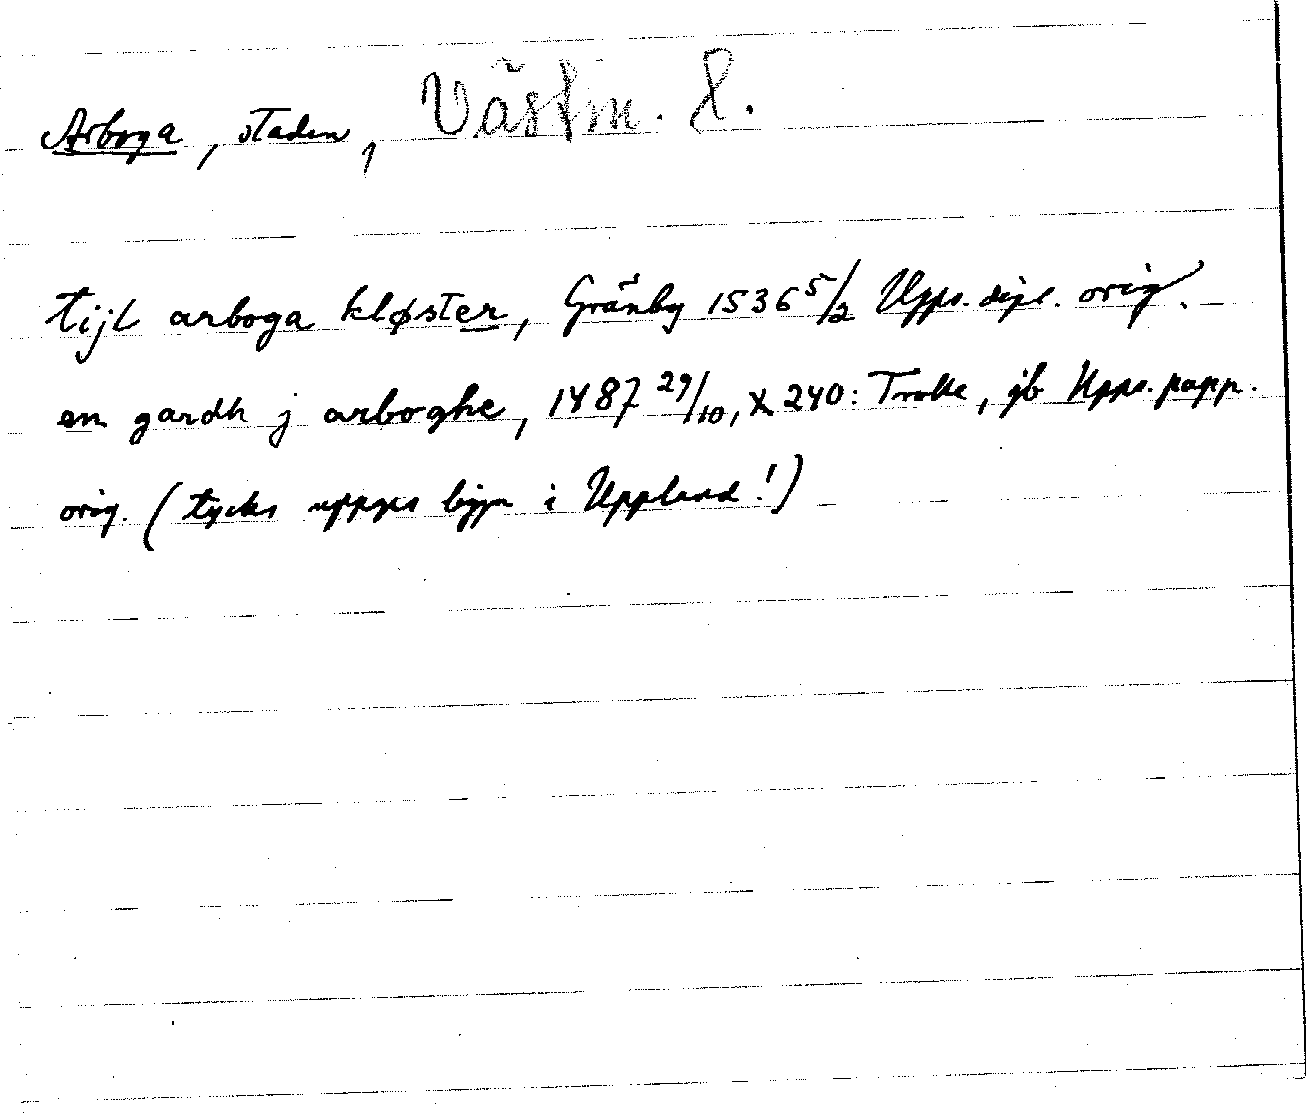 Arboga, staden, Västm. l.
tijl arboga kløster, Gränby 1536 5/2 Upps. dipl. orig.
en gardh j arboghe, 1487 29/10, X 240: Trolle, jb Upps. papp.
orig. (tycks uppges ligga i Uppland!)